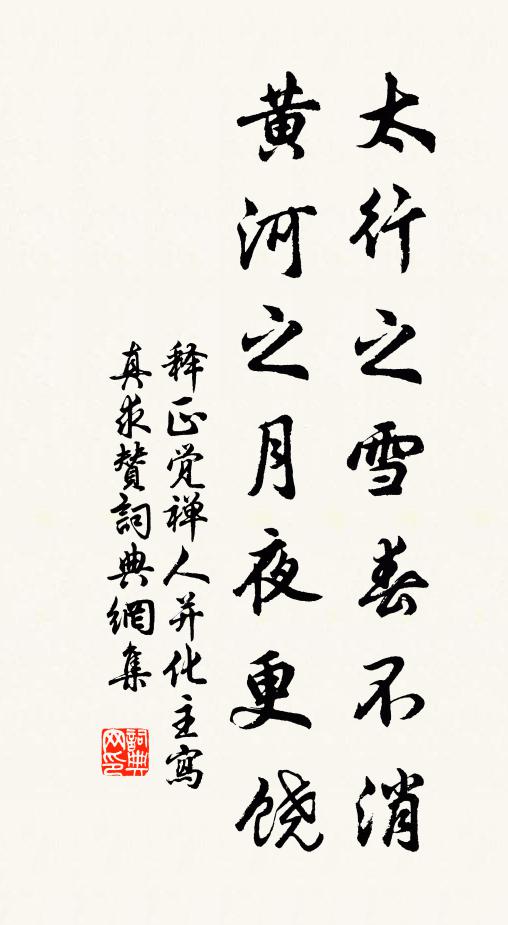 太行之雪春不消
黄河之月夜更饶
释正觉禅人并化主寫
真求赞詞典網集
詞典网印